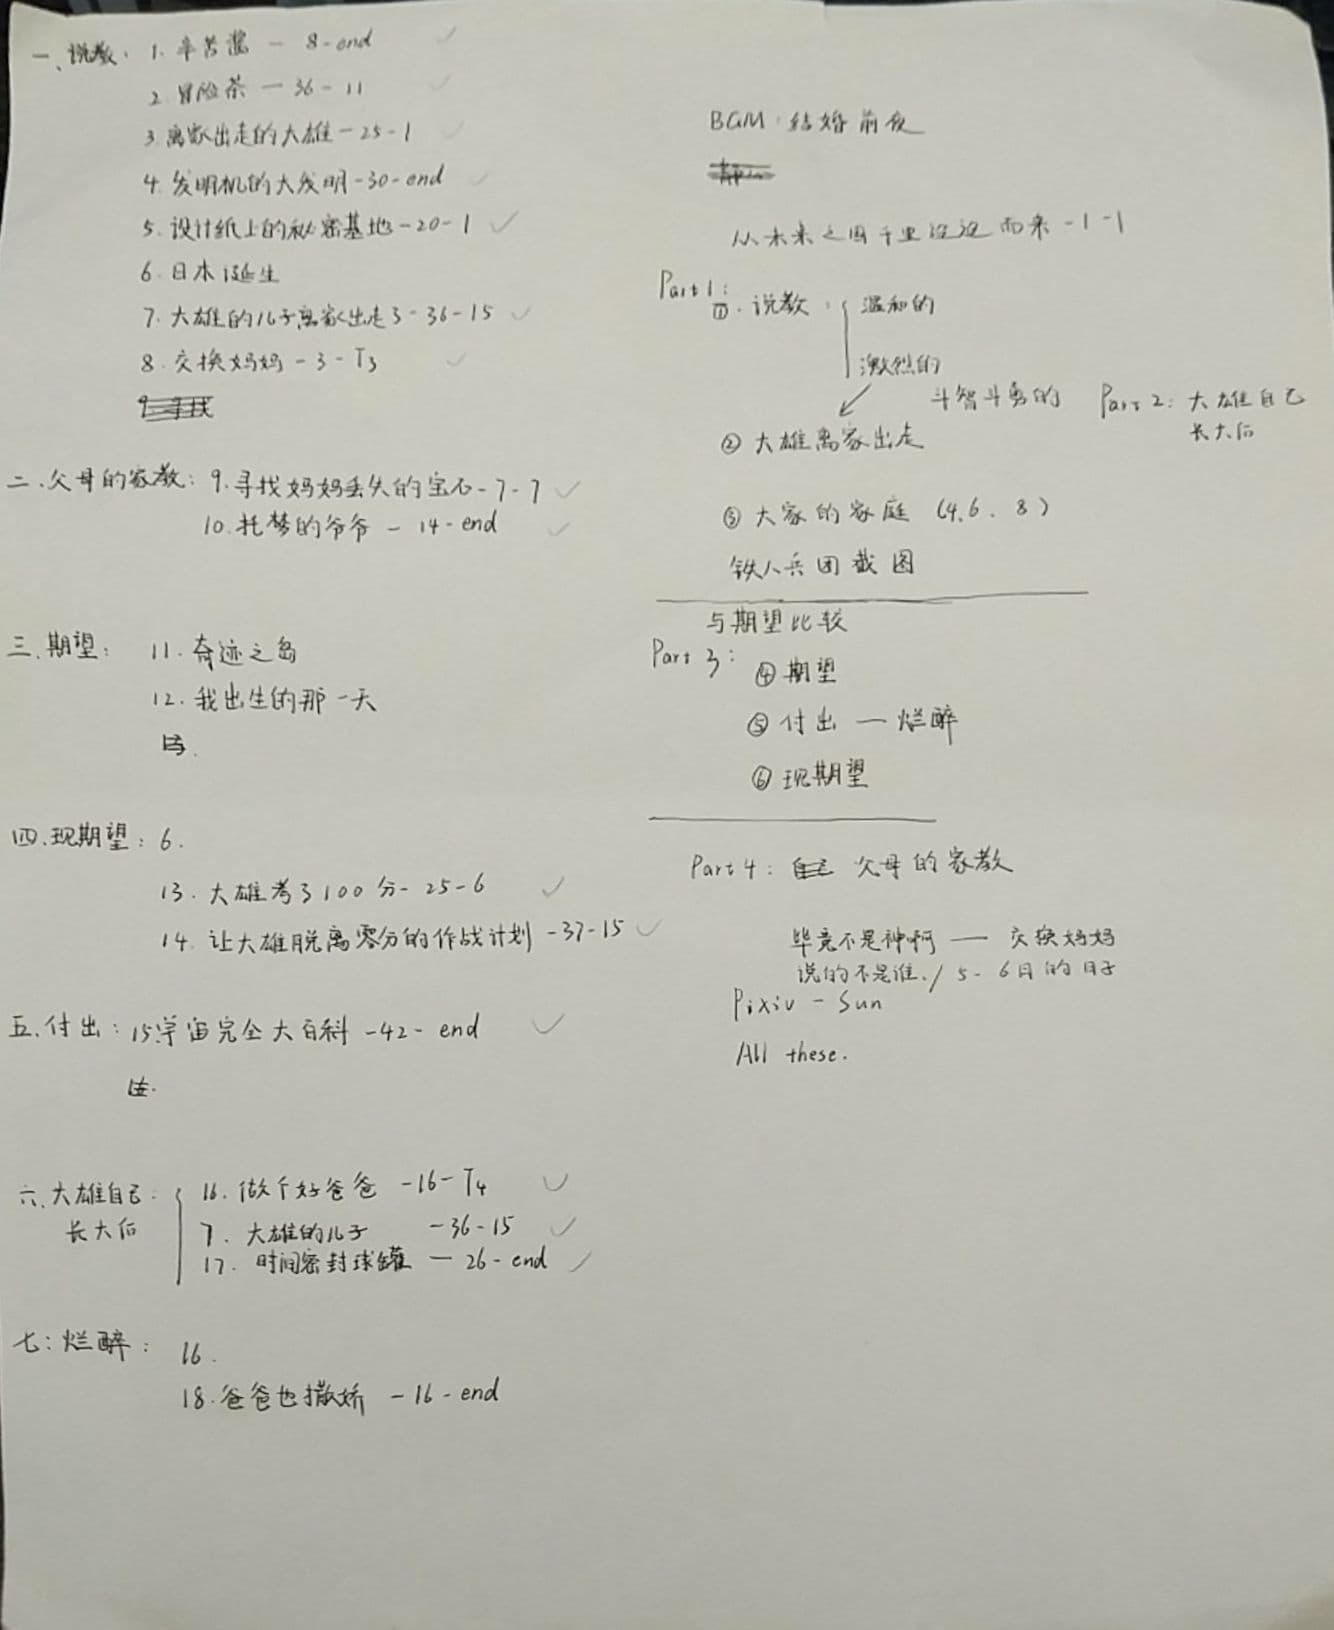 一、说教: 1. 辛苦酱 - 8-end
2. 冒险茶 - 36-11
3. 离家出走的大雄-25-1
4. 发明机的大发明-30-end
5. 设计纸上的秘密基地-20-1
6. 日本诞生
7. 大雄的儿子离家出走3-36-15
8. 交换妈妈-3-T3
二、父母的家教: 9. 寻找妈妈丢失的宝石-7-7
10. 托梦的爷爷 - 14-end
三、期望: 11. 奇迹之岛
12. 我出生的那一天
四、现期望: 6.
13. 大雄考了100分-25-6
14. 让大雄脱离零分的作战计划-37-15
五、付出: 15. 宇宙完全大百科-42-end
六、大雄自己长大后:
16. 做个好爸爸 -16-T4
7. 大雄的儿子 -36-15
17. 时间密封球罐 - 26-end
七: 烂醉: 16.
18. 爸爸也撒娇 -16-end
BGM: 结婚前夜
从未来之国千里迢迢而来-1-1
Part 1:
①. 说教: 温和的
激烈的
斗智斗勇的
Part 2: 大雄自己
长大后
② 大雄离家出走
③ 大家的家庭 (4.6.8)
铁人兵团截图
与期望比较
Part 3: ④ 期望
⑤ 付出 — 烂醉
⑥ 现期望
Part 4: 父母的家教
毕竟不是神啊 — 交换妈妈
说的不是谁. / 5-6月的日子
Pixiv - Sun
All these.